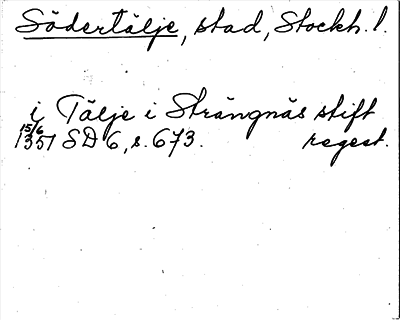 Södertälje, stad, Stockh. l.
i Tälje i Strängnäs stift
15/6 1351 SD 6, s. 673. regest.